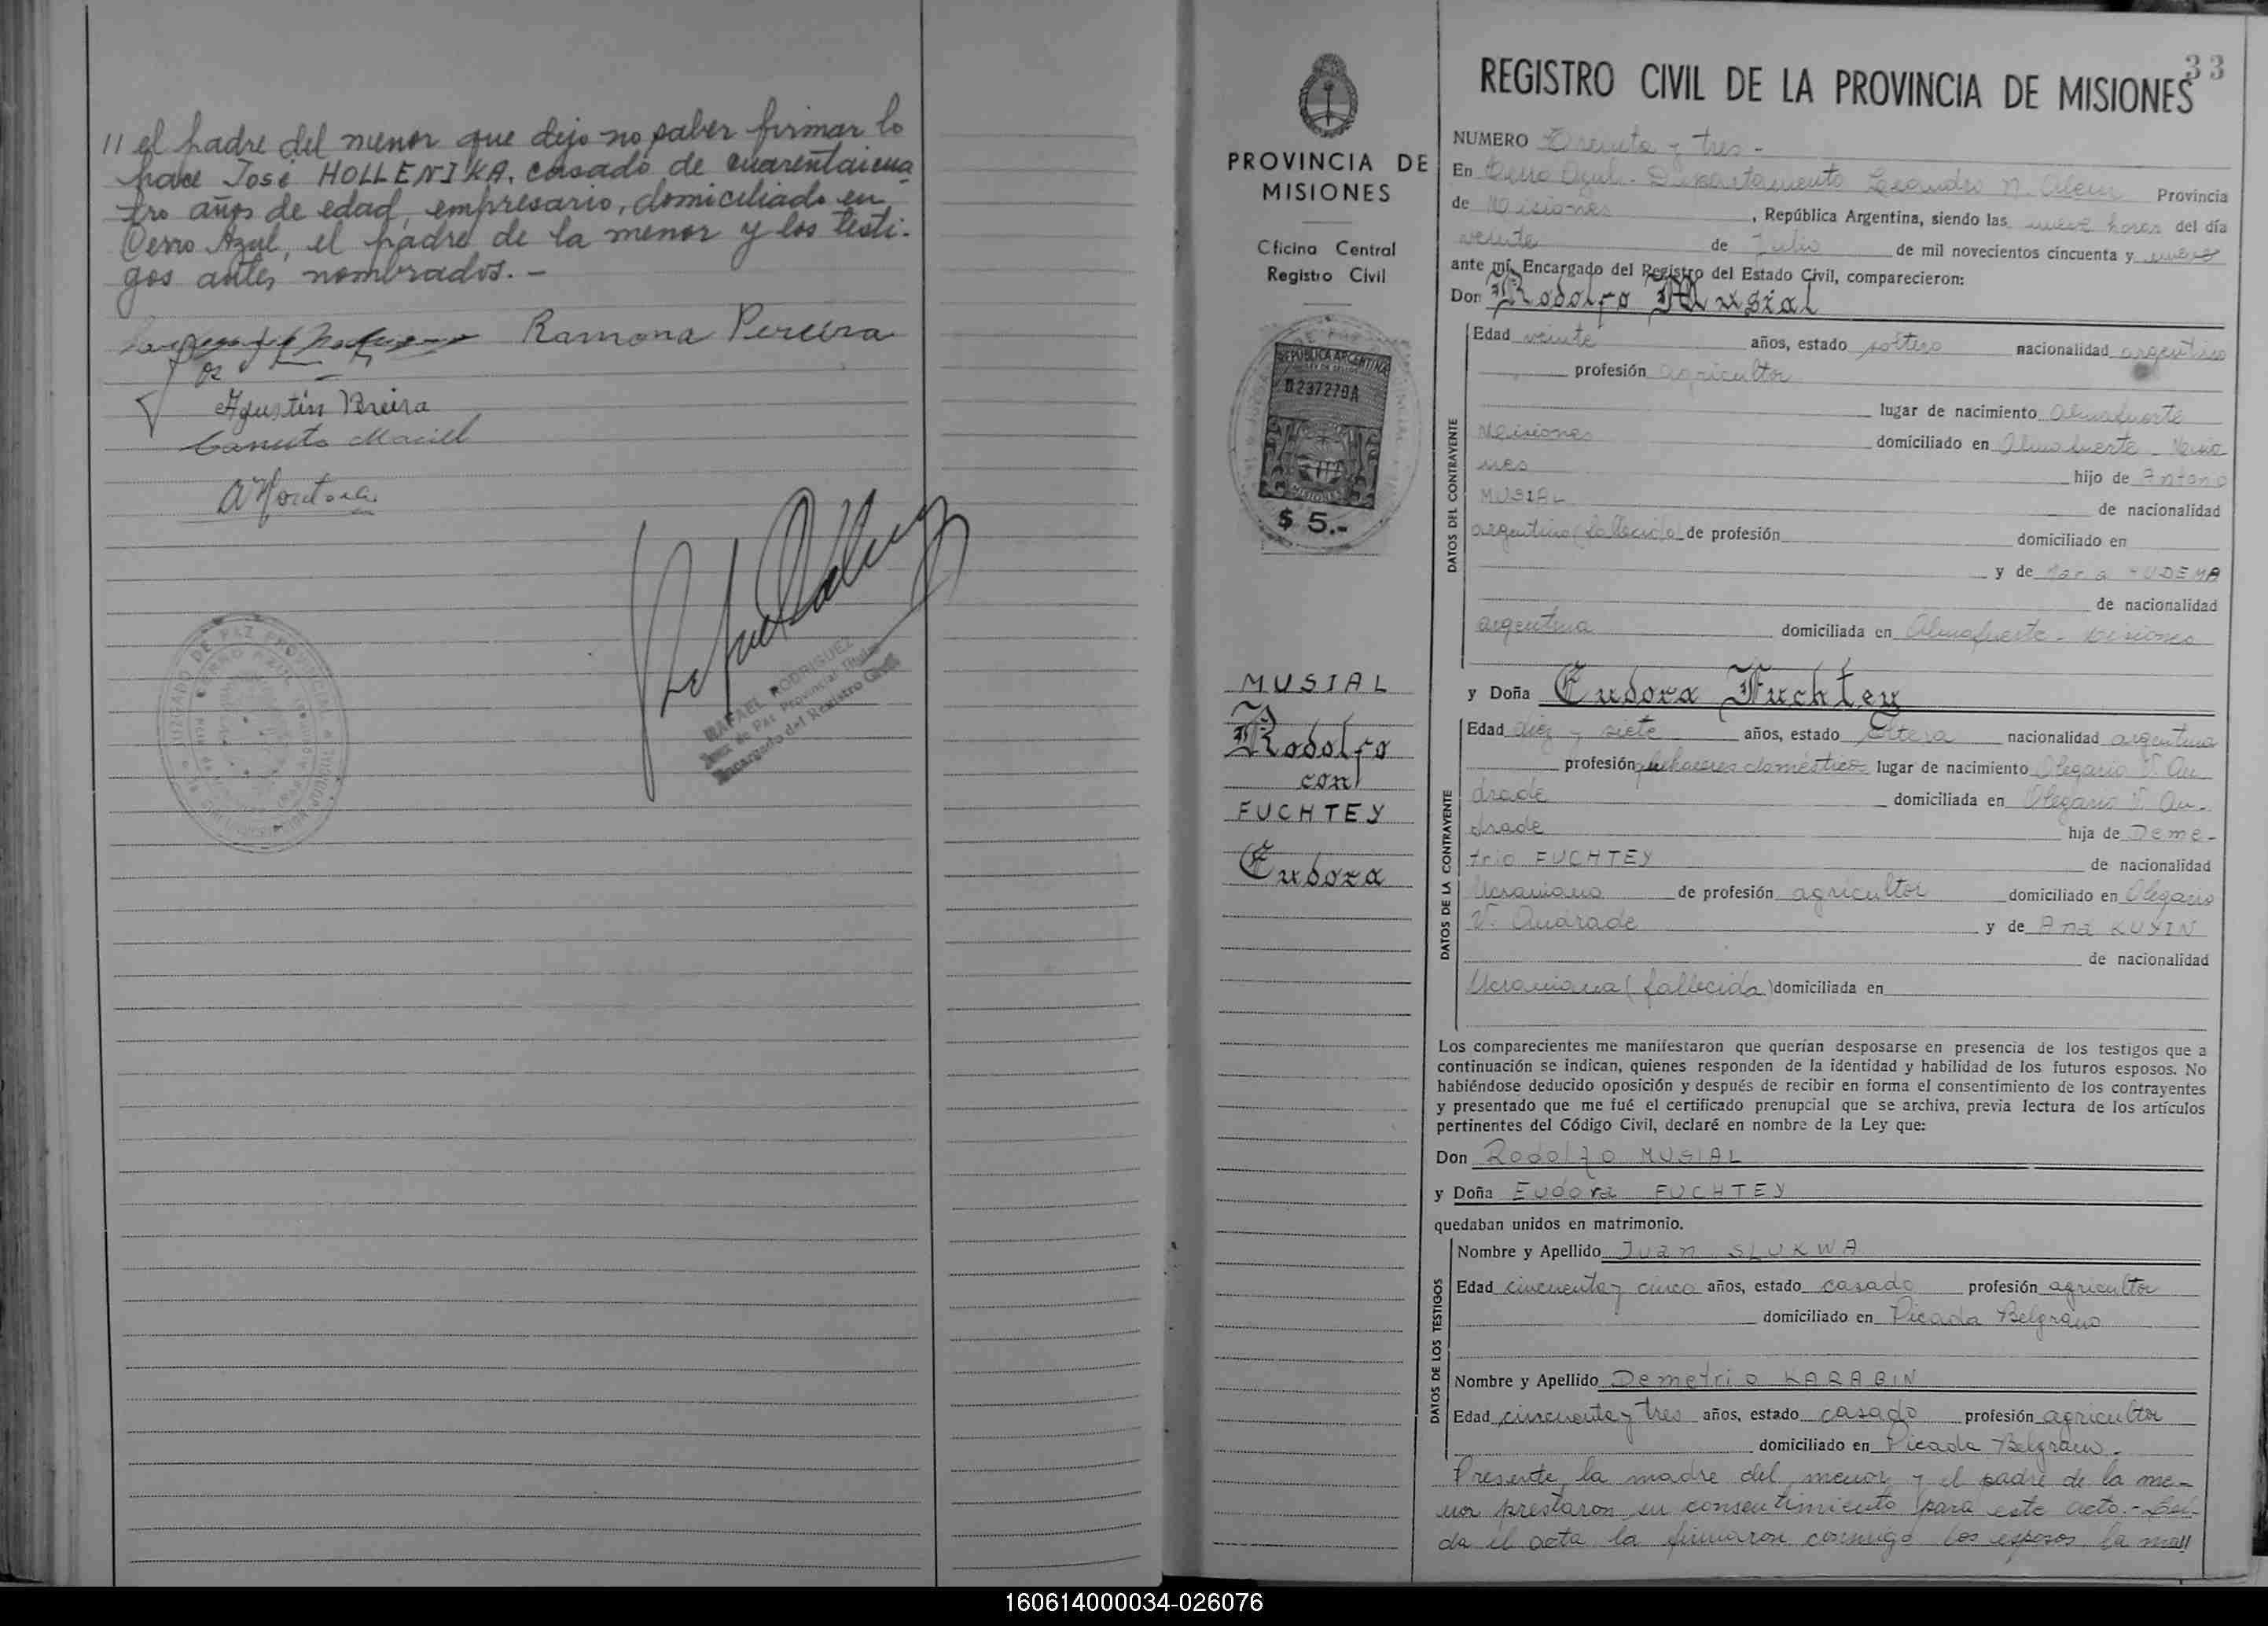 // el padre del menor que dijo no saber firmar lo
hace José HOLLENIKA, casado de cuarentaicua
tro años de edad, empresario, domiciliado en
Cerro Azul, el padre de la menor y los testi-
gos antes nombrados. -
Ramona Pereira
Agustín Pereira
Canuto Maciel
JUZGADO DE PAZ PROVINCIAL
CERRO AZUL
RAFAEL RODRIGUEZ
Juez de Paz Provincial Titular
Encargado del Registro Civil
33
PROVINCIA DE
MISIONES
Oficina Central
Registro Civil
REPUBLICA ARGENTINA
0237279A
MISIONES
$ 5.-
MUSIAL
Rodolfo
con
FUCHTEY
Eudora
REGISTRO CIVIL DE LA PROVINCIA DE MISIONES
NUMERO Treinta y tres -
En Cerro Azul - Departamento Leandro N. Alem Provincia
de Misiones , República Argentina, siendo las nueve horas del día
veinte de Julio de mil novecientos cincuenta y nueve
ante mí, Encargado del Registro del Estado Civil, comparecieron:
Don Rodolfo Musial
DATOS DEL CONTRAYENTE
Edad veinte años, estado soltero nacionalidad argentino
profesión agricultor
lugar de nacimiento Almafuerte
Misiones domiciliado en Almafuerte - Misio
nes hijo de Antonio
MUSIAL de nacionalidad
argentino (fallecido) de profesión domiciliado en
y de María
de nacionalidad
argentina domiciliada en Almafuerte - Misiones
y Doña Eudora Fuchtey
DATOS DE LA CONTRAYENTE
Edad diez y siete años, estado soltera nacionalidad argentina
profesión quehaceres domésticos lugar de nacimiento Olegario V. An
drade domiciliada en Olegario V. An-
drade hija de Deme-
trio FUCHTEY de nacionalidad
Ucraniano de profesión agricultor domiciliado en Olegario
V. Andrade y de Ana
de nacionalidad
Ucraniana (fallecida) domiciliada en
Los comparecientes me manifestaron que querían desposarse en presencia de los testigos que a
continuación se indican, quienes responden de la identidad y habilidad de los futuros esposos. No
habiéndose deducido oposición y después de recibir en forma el consentimiento de los contrayentes
y presentado que me fué el certificado prenupcial que se archiva, previa lectura de los artículos
pertinentes del Código Civil, declaré en nombre de la Ley que:
Don Rodolfo MUSIAL
y Doña Eudora FUCHTEY
quedaban unidos en matrimonio.
DATOS DE LOS TESTIGOS
Nombre y Apellido Juan SLUKWA
Edad cincuenta y cinco años, estado casado profesión agricultor
domiciliado en Picada Belgrano
Nombre y Apellido Demetrio KARABIN
Edad cincuenta y tres años, estado casado profesión agricultor
domiciliado en Picada Belgrano -
Presente la madre del menor y el padre de la me-
nor prestaron su consentimiento para este acto. - Leí-
da el acta la firmaron conmigo los esposos, la ma//
160614000034-026076